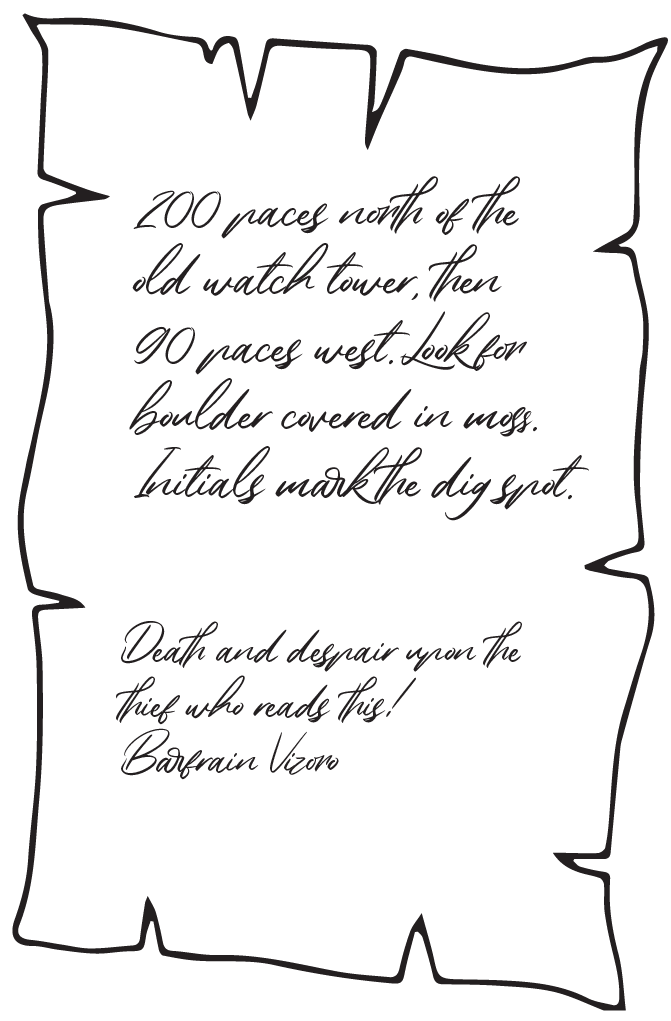 200 paces north of the
old watch tower, then
90 paces west. Look for
boulder covered in moss.
Initials mark the dig spot.
Death and despair upon the
thief who reads this!
Barfrain Vizoro